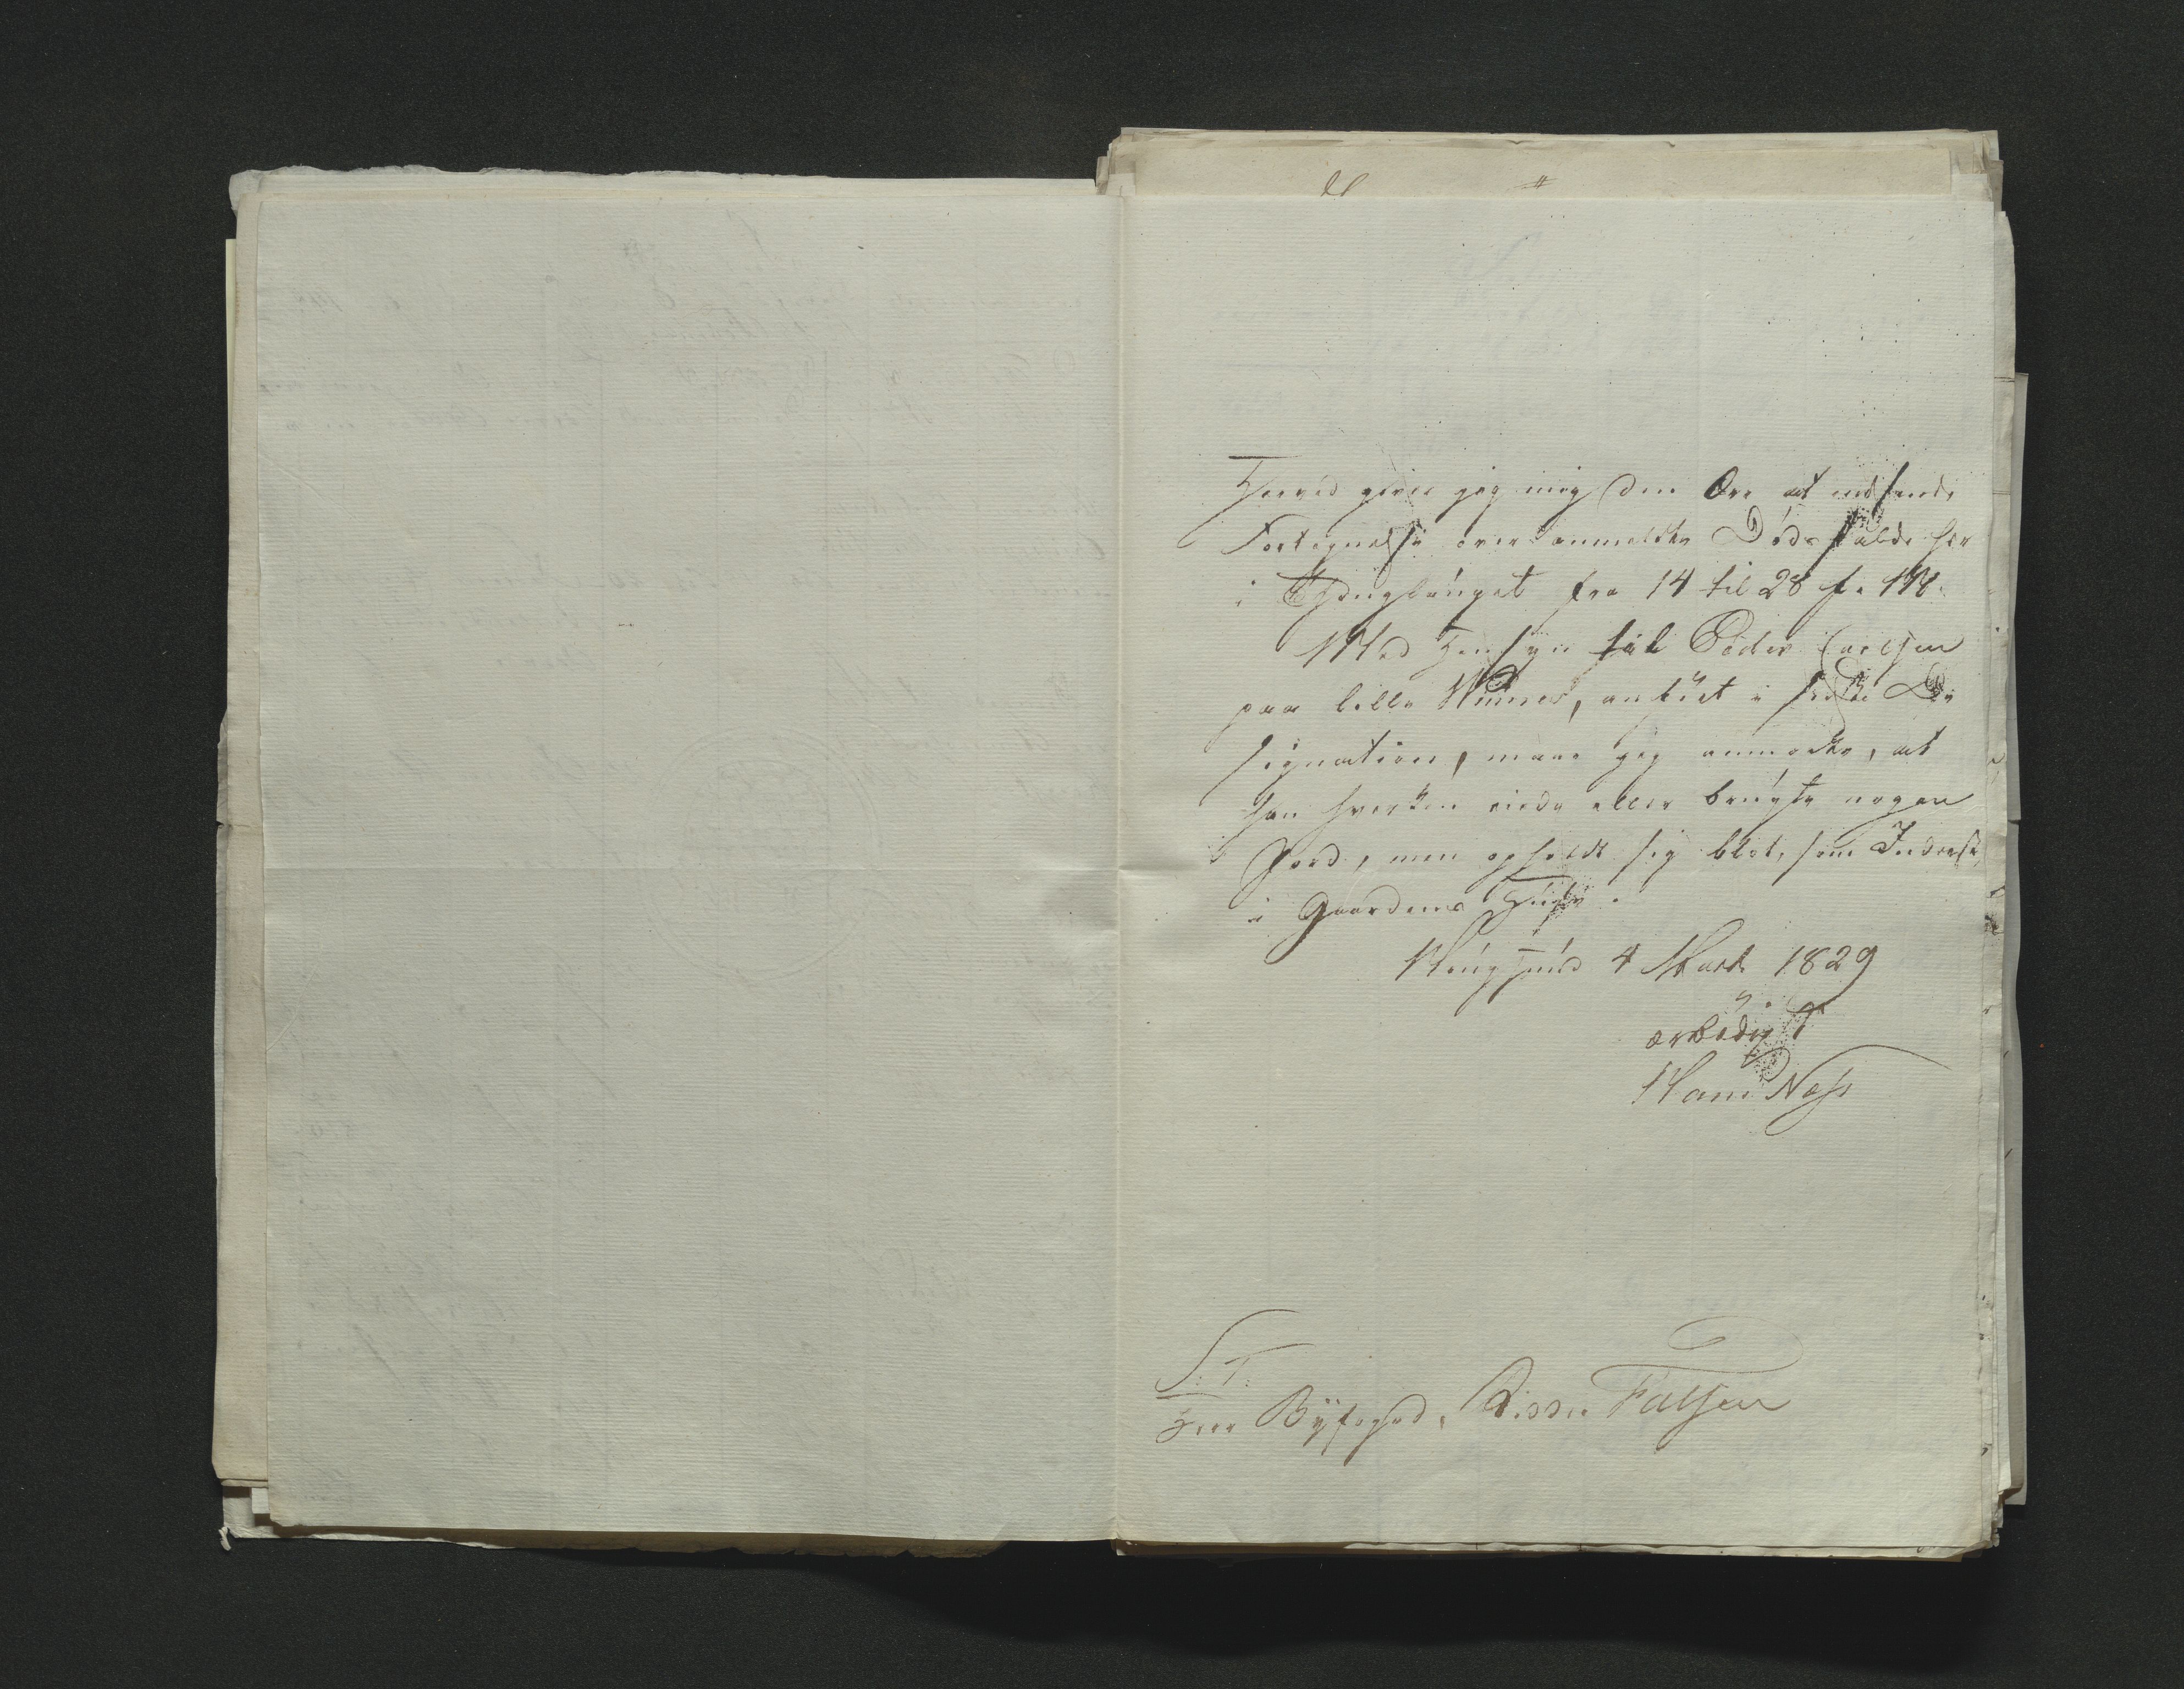 Hervid giver jeg mig den Ære at indsende
Fortegnelse over anmeldte Dødsfalde her
i Thinglauget fra 14 til 28 f. M.
Med Hensyn til Peder Carlsen
paa lille, anført i sidste De
signation, maae jeg anmærke, at
han hverken eiede eller brugte nogen
Jord, men opholdt sig blot, som Inderst,
i Gaardens Huse.
4 Mart 1829
ærbødigst
Hans Næss
S. T.
Herr Byfoged, Ridder Falsen